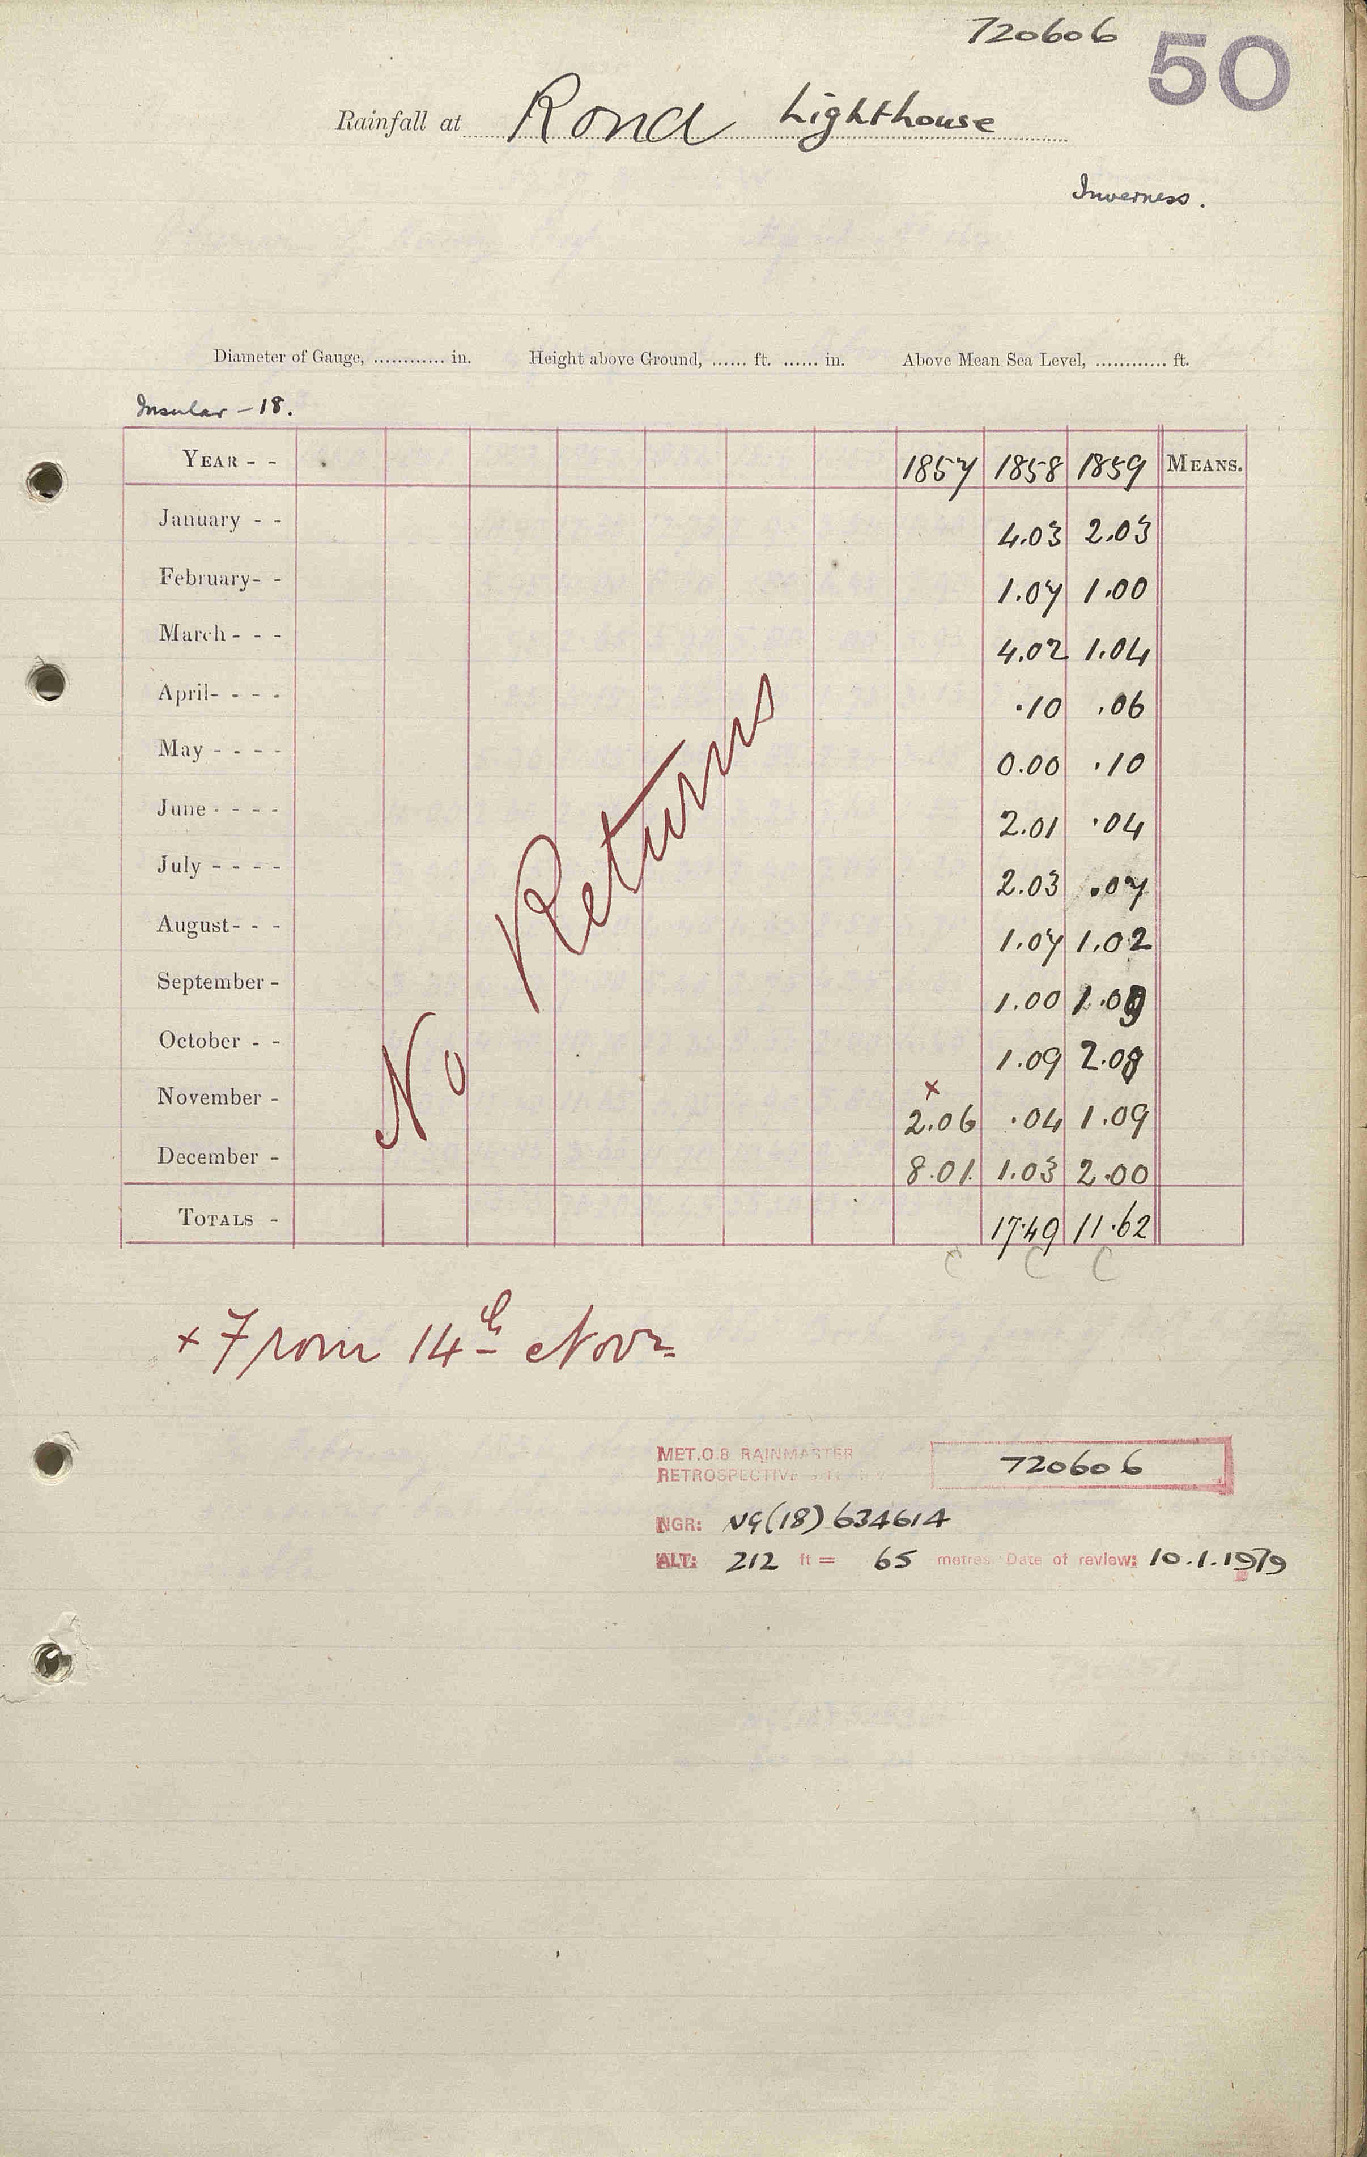 720606
50
Rainfall at Rona Lighthouse
Inverness.
Diameter of Gauge, ............ in. Height above Ground, ...... ft. ...... in. Above Mean Sea Level, ............ ft.
Insular - 18.
YEAR - - 1857 1858 1859 MEANS.
January - - 4.03 2.03
February - - 1.07 1.00
March - - - 4.02 1.04
April - - - - .10 .06
May - - - - 0.00 .10
June - - - - 2.01 .04
July - - - - 2.03 .07
August - - - 1.07 1.02
September - 1.00 1.09
October - - 1.09 2.08
x
November - 2.06 .04 1.09
December - 8.01 1.03 2.00
TOTALS - 17.49 11.62
C C C
No Returns
x From 14th Novr
MET.O.8 RAINMASTER
RETROSPECTIVE
720606
NGR: NG(18) 634614
ALT: 212 ft = 65 metres Date of review: 10.1.1979